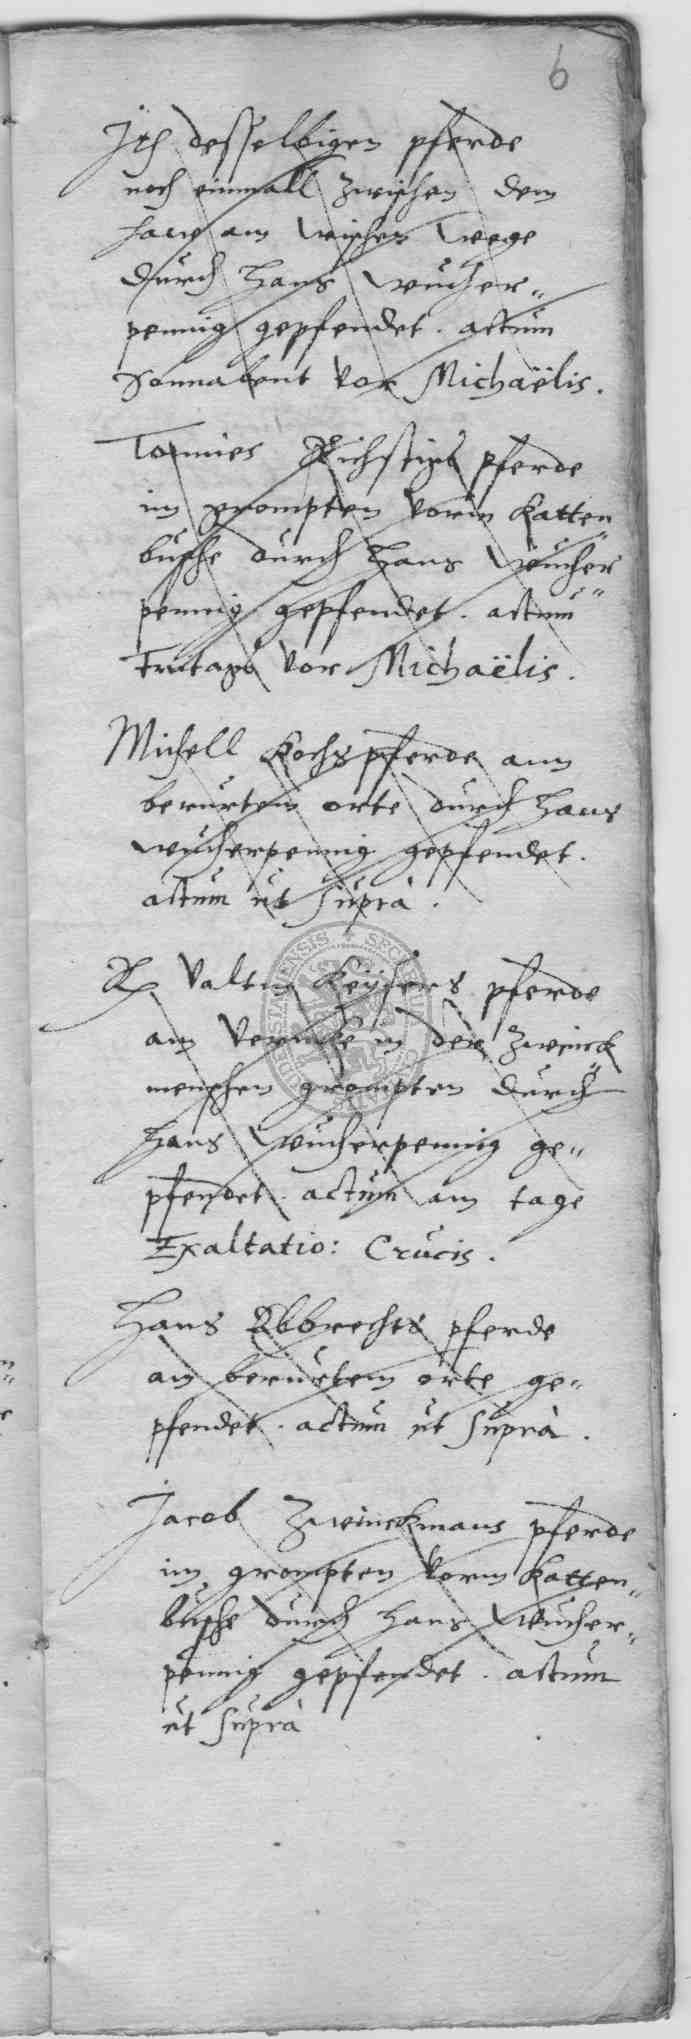 6
Ite desselbigen pferde
noch einmall zwischen dem
am wischen Wege
durch Hans Wucher„
pennig gepfendet. actum
Sonnabent vor Michaëlis.
Tonnies pferde
im grompten vorm Katten„
busche durch Hans Wucher„
pennig gepfendet. actum
Freitags vor Michaëlis.
Michell Kochs pferde am
berürtem orte durch Hans
Wucherpennig gepfendet.
actum ut Suprà.
Valtin Keÿsers pferde
am in der Zweinck„
menschen grompten durch
Hans Wucherpennig ge„
pfendet. actum am tage
Exaltatio: Crucis.
Hans Abbrechts pferde
am berurtem orte ge„
pfendet. actum ut Suprà.
Jacob Zweinckmans pferde
im grompten vorm Katten„
busche durch Hans Wucher„
pennig gepfendet. actum
ut Suprà